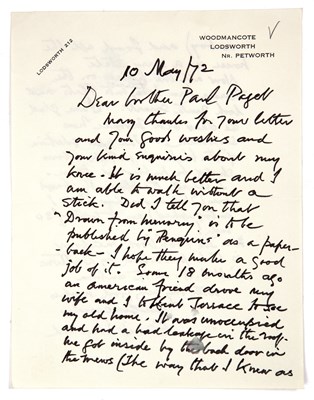 LODSWORTH 212
WOODMANCOTE
LODSWORTH
NR. PETWORTH
10 May/72
Dear brother Paul Paget
Many thanks for your letter
and your good wishes and
your kind enquiries about my
knee - It is much better and I
am able to walk without a
stick. Did I tell you that
"Drawn from memory" is to be
published by "Penguins" as a paper-
-back - I hope they make a good
job of it. Some 18 months ago
an American friend drove my
wife and I to Kent Terrace to see
my old home. It was unoccupied
and had a bad leakage in the roof.
We got inside by the back door in
the mews (The way that I knew as